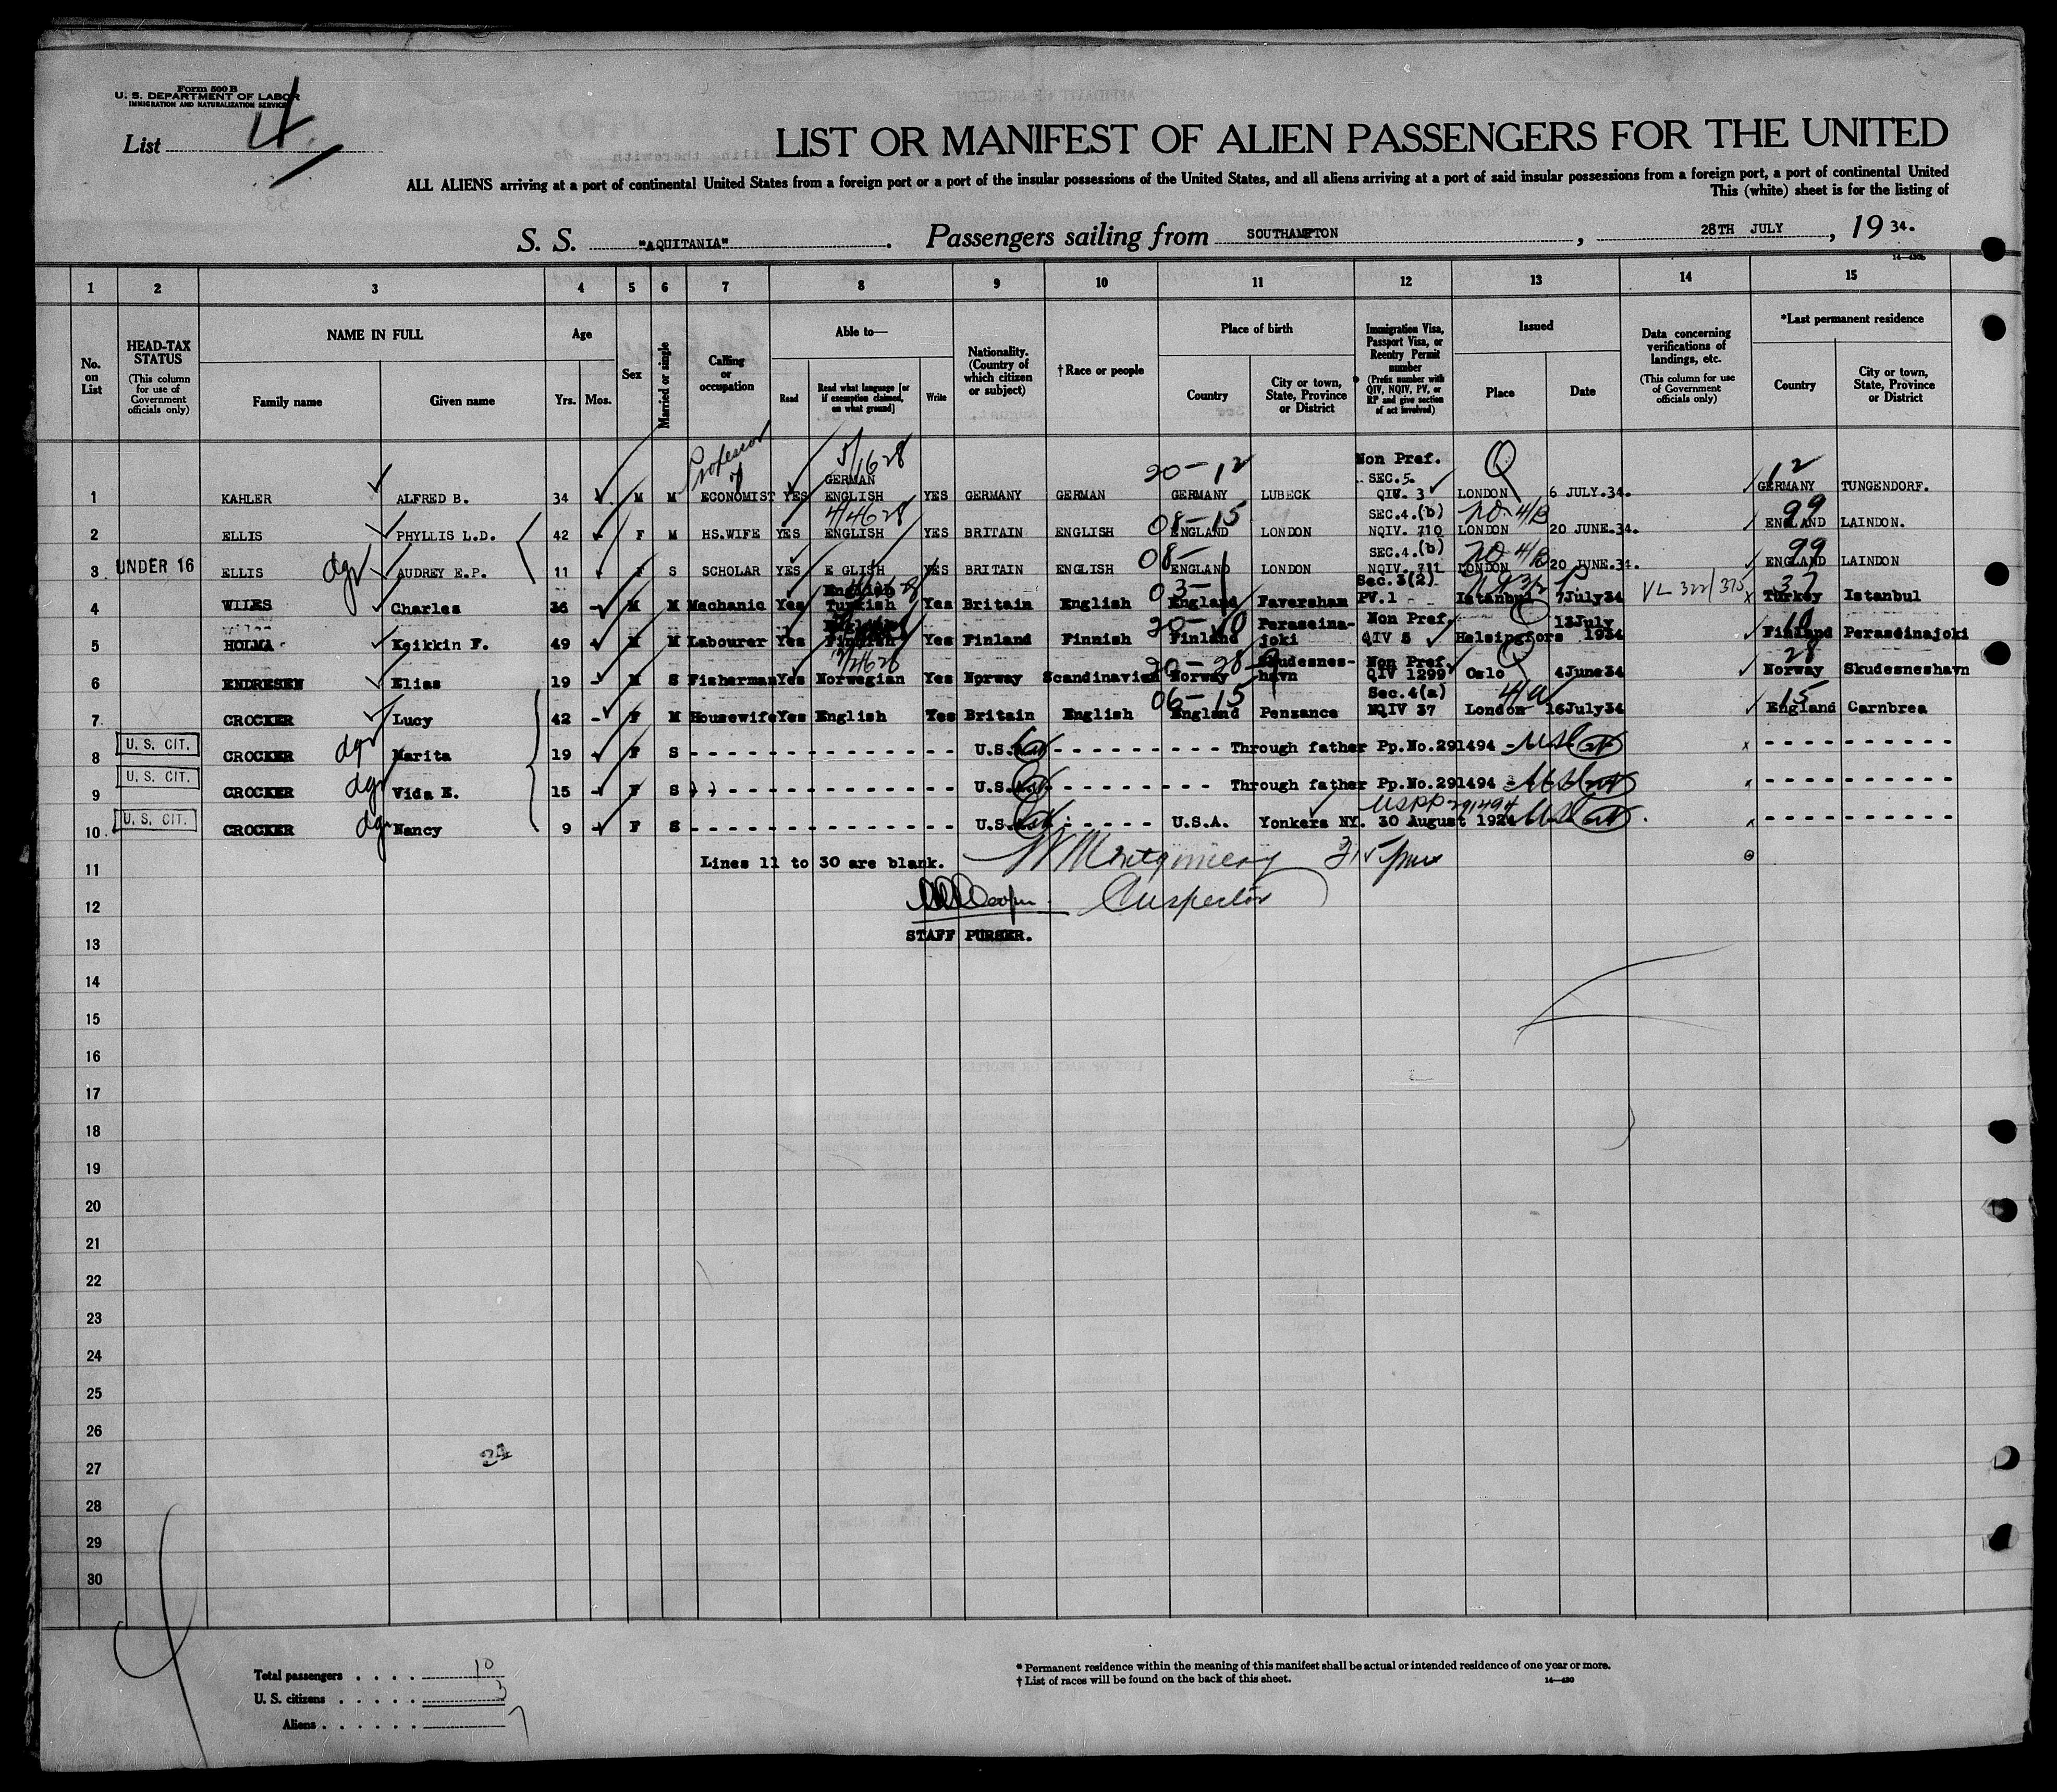 Form 500 B
U. S. DEPARTMENT OF LABOR
IMMIGRATION AND NATURALIZATION SERVICE
List 4
LIST OR MANIFEST OF ALIEN PASSENGERS FOR THE UNITED
ALL ALIENS arriving at a port of continental United States from a foreign port or a port of the insular possessions of the United States, and all aliens arriving at a port of said insular possessions from a foreign port, a port of continental United
This (white) sheet is for the listing of
S. S. "AQUITANIA". Passengers sailing from SOUTHAMPTON, 28TH JULY, 19 34.
1 2 3 4 5 6 7 8 9 10 11 12 13 14 15
No. on List
HEAD-TAX STATUS
(This column for use of Government officials only)
NAME IN FULL
Family name Given name
Age
Yrs. Mos.
Sex
Married or single
Calling or occupation
Able to—
Read Read what language [or if exemption claimed, on what ground] Write
Nationality. (Country of which citizen or subject)
† Race or people
Place of birth
Country City or town, State, Province or District
Immigration Visa, Passport Visa, or Reentry Permit number
* (Prefix number with QIV, NQIV, PV, or RP and give section of act involved)
Issued
Place Date
Data concerning verifications of landings, etc.
(This column for use of Government officials only)
*Last permanent residence
Country City or town, State, Province or District
Professor of 5/1628 20-12 Non Pref. Q 12
GERMAN SEC.5.
1 KAHLER ALFRED B. 34 M M ECONOMIST YES ENGLISH YES GERMANY GERMAN GERMANY LUBECK QIV. 3 LONDON 6 JULY.34. GERMANY TUNGENDORF.
4/4628 08-15 SEC.4.(b) no 4/B 99
2 ELLIS PHYLLIS L.D. 42 F M HS.WIFE YES ENGLISH YES BRITAIN ENGLISH ENGLAND LONDON NQIV. 710 LONDON 20 JUNE.34. ENGLAND LAINDON.
08- SEC.4.(b) no 4/B 99
3 UNDER 16 ELLIS dgr AUDREY E.P. 11 F S SCHOLAR YES E GLISH YES BRITAIN ENGLISH ENGLAND LONDON NQIV. 711 LONDON 20 JUNE.34. ENGLAND LAINDON
English 03-1 Sec.3(2) 37
4 WILES Charles 36 M M Mechanic Yes Turkish Yes Britain English England Faversham PV.1 Istanbul 7July34 VL 322/375 Turkey Istanbul
20-10 Peraseina- Non Pref. 13July 10
5 HOLMA Keikkin F. 49 M M Labourer Yes Finnish Yes Finland Finnish Finland joki QIV 5 Helsingfors 1934 Finland Peraseinajoki
20-28 Skudesnes- Non Pref. Q 28
6 ENDRESEN Elias 19 M S Fisherman Yes Norwegian Yes Norway Scandinavian Norway havn QIV 1299 Oslo 4June34 Norway Skudesneshavn
06-15 Sec.4(a) 4/a 15
7 CROCKER Lucy 42 F M Housewife Yes English Yes Britain English England Penzance NQIV 37 London 16July34 England Carnbrea
8 U. S. CIT. CROCKER dgr Marita 19 F S U.S. Through father Pp.No.291494
9 U. S. CIT. CROCKER dgr Vida E. 15 F S U.S. Through father Pp.No.291494
USPP 291494
10 U. S. CIT. CROCKER dgr Nancy 9 F S U.S. U.S.A. Yonkers NY. 30 August 1924
11 Lines 11 to 30 are blank. W Montgomery
12 Inspector
13 STAFF PURSER.
14
15
16
17
18
19
20
21
22
23
24
25
26
27
34
28
29
30
Total passengers . . . . 10
U. S. citizens . . . . . 3
Aliens . . . . . . 7
* Permanent residence within the meaning of this manifest shall be actual or intended residence of one year or more.
† List of races will be found on the back of this sheet.
14—430